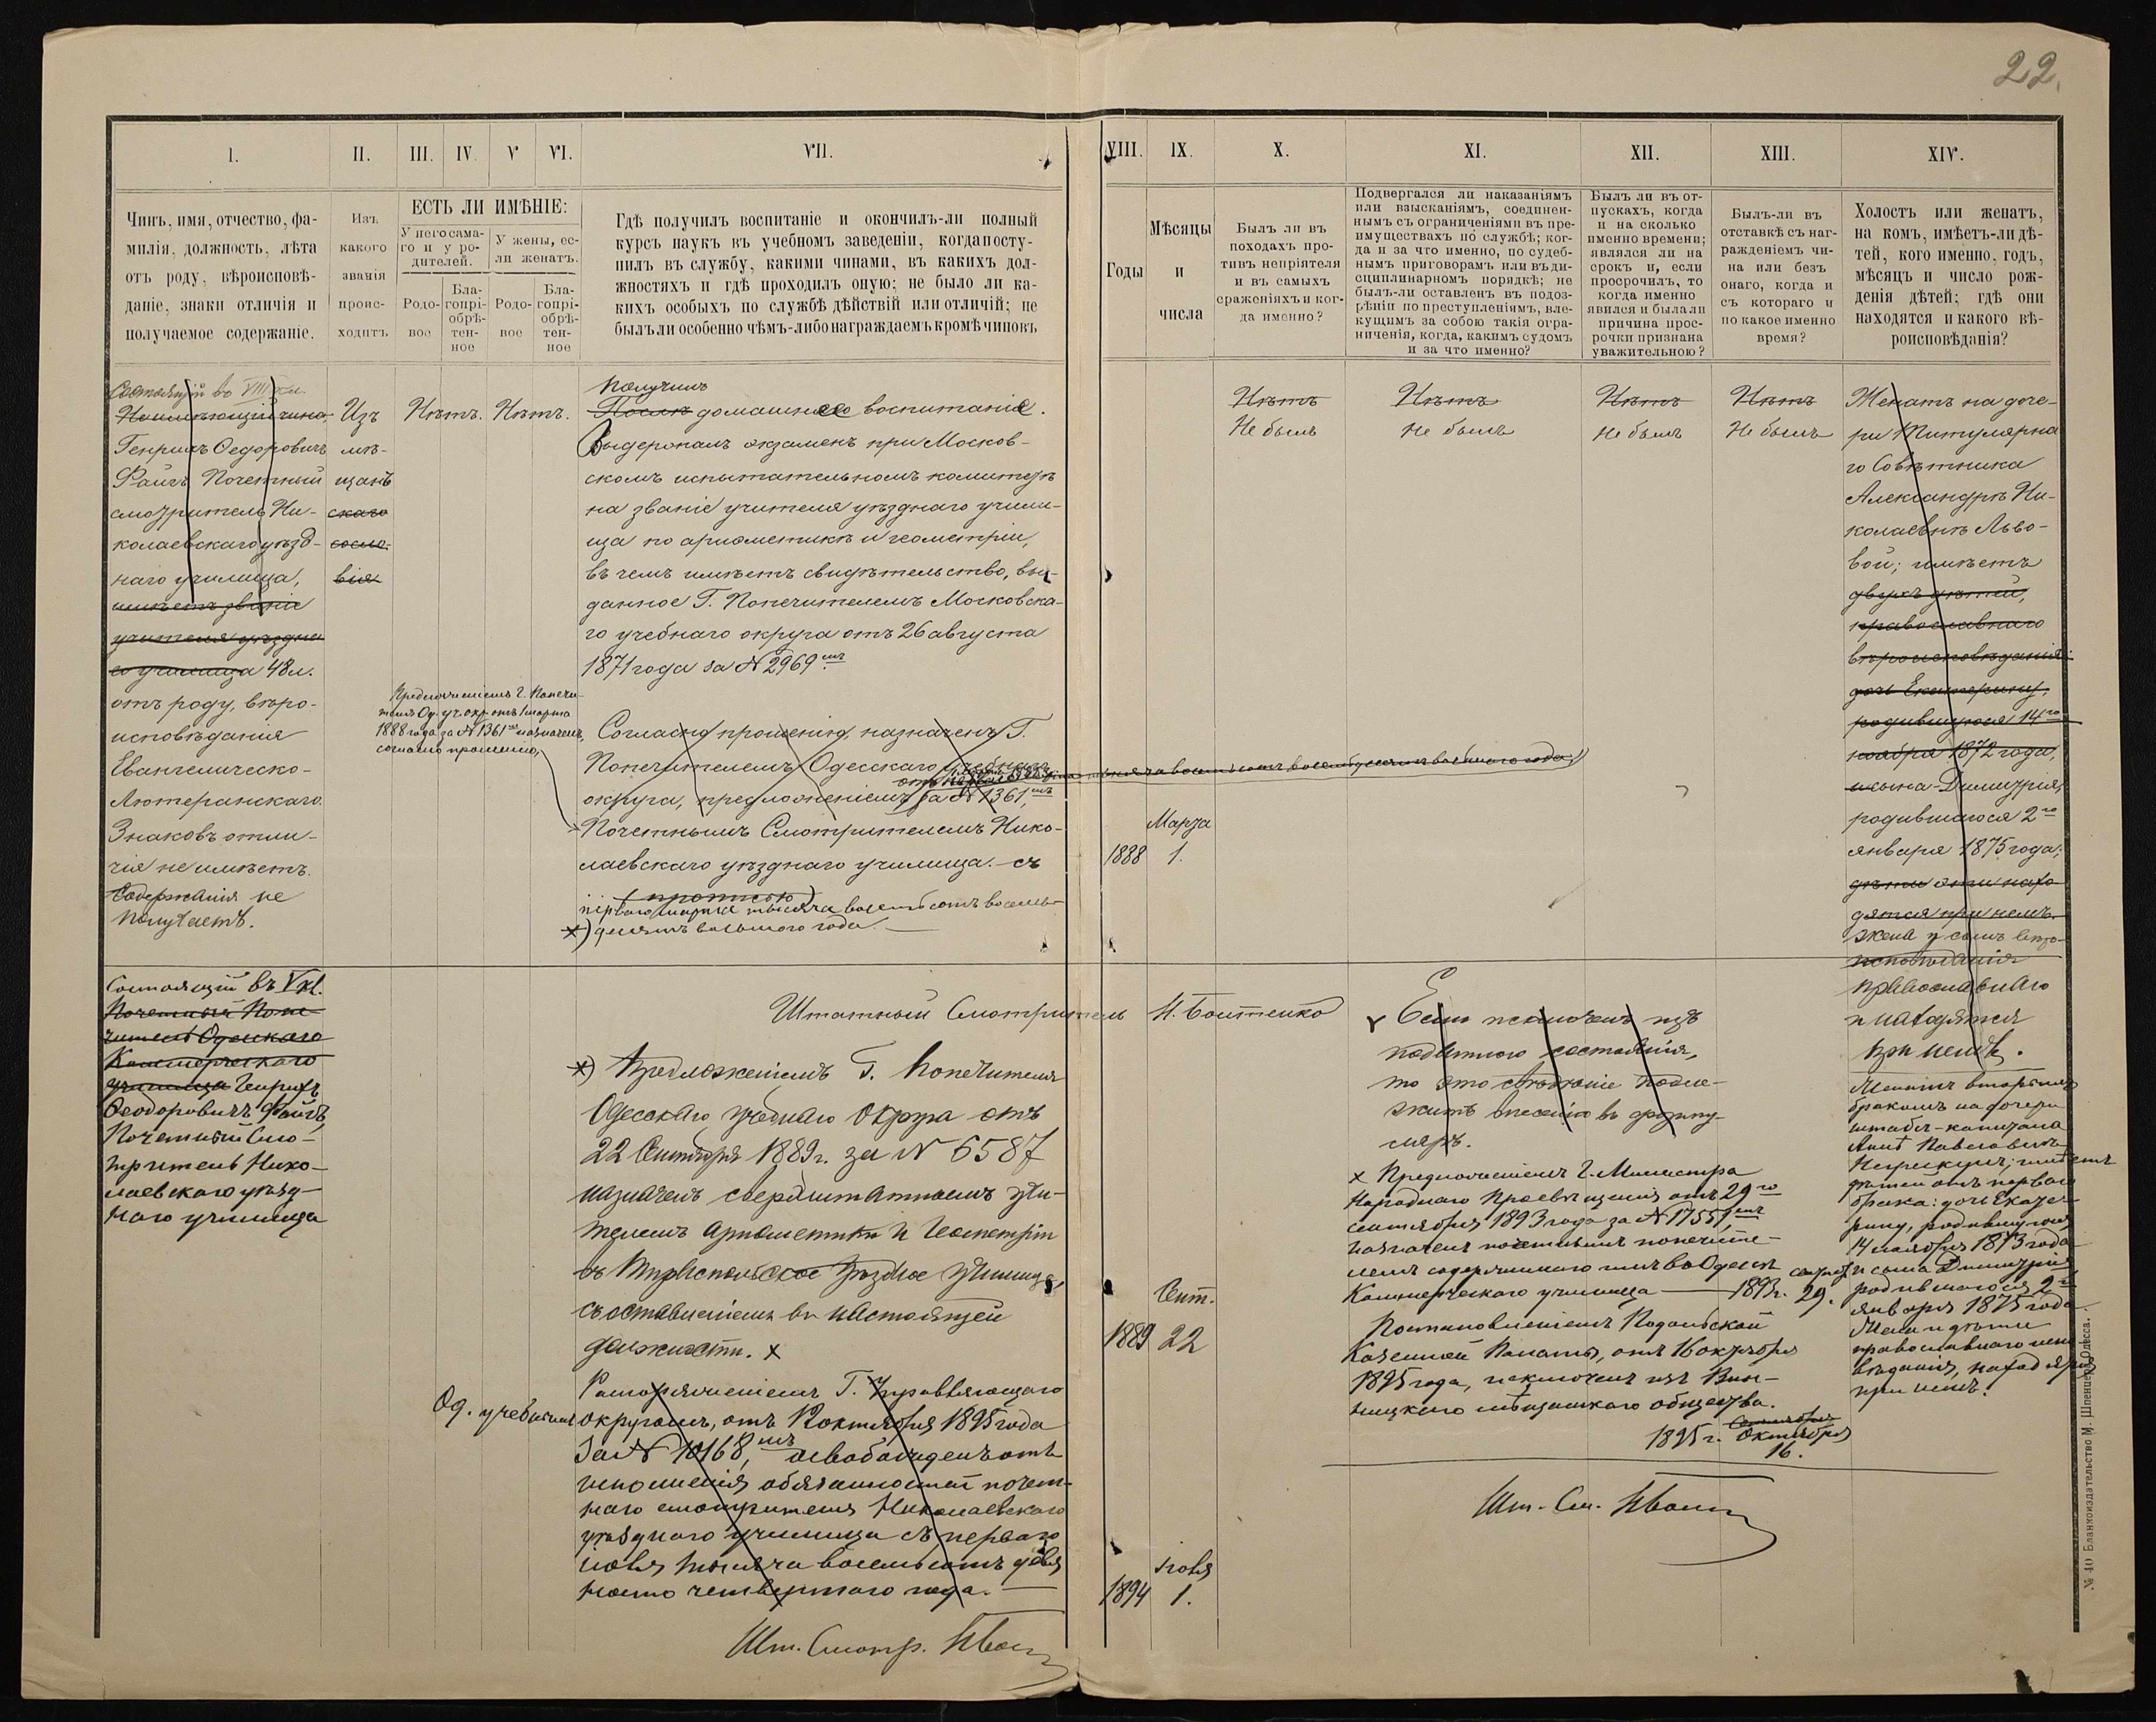 22.
I.
II.
III.
IV.
V
VI.
VII.
VIII.
IX.
X.
XI.
XII.
XIII.
XIV.
Чинъ, имя, отчество, фа-
милія, должность, лѣта
отъ роду, вѣроисповѣ-
даніе, знаки отличія и
получаемое содержаніе.
Изъ
какого
званія
проис-
ходитъ
ЕСТЬ ЛИ ИМѢНІЕ:
У него сама-
го и у ро-
дителей.
У жены, ес-
ли женатъ.
Родо-
вое
Бла-
гопрі-
обрѣ-
тен-
ное
Родо-
вое
Бла-
гопрі-
обрѣ-
тен-
ное
Гдѣ получилъ воспитаніе и окончилъ-ли полный
курсъ наукъ въ учебномъ заведеніи, когда посту-
пилъ въ службу, какими чинами, въ какихъ дол-
жностяхъ и гдѣ проходилъ оную; не было ли ка-
кихъ особыхъ по службѣ дѣйствій или отличій; не
былъ ли особенно чѣмъ-либо награждаемъ кромѣ чиновъ
Годы
Мѣсяцы
и
числа
Былъ ли въ
походахъ про-
тивъ непріятеля
и въ самыхъ
сраженіяхъ и ког-
да именно?
Подвергался ли наказаніямъ
или взысканіямъ, соединен-
нымъ съ ограниченіями въ пре-
имуществахъ по службѣ; ког-
да и за что именно, по судеб-
нымъ приговорамъ или въ ди-
сциплинарномъ порядкѣ; не
былъ-ли оставленъ въ подоз-
рѣніи по преступленіямъ, вле-
кущимъ за собою такія огра-
ниченія, когда, какимъ судомъ
и за что именно?
Былъ ли въ от-
пускахъ, когда
и на сколько
именно времени;
являлся ли на
срокъ и, если
просрочилъ, то
когда именно
явился и была ли
причина прос-
рочки признана
уважительною?
Былъ-ли въ
отставкѣ съ наг-
ражденіемъ чи-
на или безъ
онаго, когда и
съ котораго и
по какое именно
время?
Холостъ или женатъ,
на комъ, имѣетъ-ли дѣ-
тей, кого именно, годъ,
мѣсяцъ и число рож-
денія дѣтей; гдѣ они
находятся и какого вѣ-
роисповѣданія?
Состоящій во VIII кл.
Неимѣющій чина,
Генрихъ Федоровичъ
Файгъ Почетный
смотритель Ни-
колаевскаго уѣзд-
наго училища,
имѣетъ званіе
учителя уѣздна
го училища 48 л.
отъ роду, вѣро-
исповѣданія
Евангелическо-
Лютеранскаго.
Знаковъ отли-
чія не имѣетъ.
Содержанія не
получаетъ.
Изъ
мѣ-
щанъ
скаго
сосло-
вія
Нѣтъ.
Нѣтъ.
Получилъ
Послѣ домашнее воспитаніе.
Выдержалъ экзаменъ при Москов-
скомъ испытательномъ комитетѣ
на званіе учителя уѣзднаго учили-
ща по ариѳметикѣ и геометріи,
въ чемъ имѣетъ свидѣтельство, вы-
данное Г. Попечителемъ Московска-
го учебнаго округа отъ 26 августа
1871 года за № 2969 мъ
Предложеніемъ Г. Попечи-
теля Од. уч. окр. отъ 1 марта
1888 года за № 1361 мъ назначенъ,
согласно прошенію,
Согласно прошенію, назначенъ Г.
Попечителемъ Одесскаго учебнаго
округа, предложеніемъ за № 1361 мъ
Почетнымъ Смотрителемъ Нико-
лаевскаго уѣзднаго училища. съ
(прописью)
перваго марта тысяча восемьсотъ восемь-
х) десятъ восьмого года.
Марта
1888
1.
Нѣтъ
Не былъ
Нѣтъ
Не былъ
Нѣтъ
Не былъ
Нѣтъ
Не былъ
Женатъ на доче-
ри Титулярна
го Совѣтника
Александрѣ Ни-
колаевнѣ Льво-
вой; имѣетъ
двухъ дѣтей,
православнаго
вѣроисповѣданія:
дочь Екатерину,
родившуюся 14 го
ноября 1872 года,
и сына Димитрія,
родившагося 2 го
января 1875 года;
дѣти эти нахо
дятся при немъ.
жена и сынъ вѣро-
исповѣданія
православнаго
и находятся
при немъ.
Состоящій въ V кл.
Почетный Попе-
читель Одесскаго
Коммерческаго
училища Генрихъ
Ѳеодоровичъ Файгъ,
Почетный Смо-
тритель Нико-
лаевскаго уѣзд-
наго училища
Штатный Смотритель Н. Бойтенко
х) Предложеніемъ Г. Попечителя
Одесскаго учебнаго Округа отъ
22 Сентября 1889 г. за № 6587
назначенъ сверхштатнымъ учи-
телемъ ариѳметики и Геометріи
въ Тираспольское Уѣздное Училище,
съ оставленіемъ въ настоящей
должности. х
Сент.
1889
22
Од. учебнымъ
Распоряженіемъ Г. Управляющаго
округомъ, отъ 12 октября 1895 года
за № 10168 мъ, освобожденъ отъ
исполненія обязанностей почет-
наго смотрителя Николаевскаго
уѣзднаго училища съ перваго
іюля тысяча восемьсотъ девя
носто четвертаго года.
іюля
1894
1.
Шт. Смотр.
Если исключенъ изъ
податного состоянія,
то это свѣдѣніе подле-
житъ внесенію въ формуляръ.
х Предложеніемъ Г. Министра
Народнаго Просвѣщенія отъ 29 го
сентября 1893 года за № 17551 мъ
назначенъ почетнымъ попечите-
лемъ содержимаго имъ въ Одессѣ
Коммерческаго училища — 1893 г. сентяб. 29.
Постановленіемъ Подольской
Казенной Палаты, отъ 16 октября
1895 года, исключенъ изъ Вин-
ницкаго мѣщанскаго общества.
Сентября
1895 г. Октября
16.
Шт. См.
Женатъ вторымъ
бракомъ на дочери
штабсъ-капитана
Аннѣ Павловнѣ
имѣетъ
дѣтей отъ перваго
брака: дочь Екате-
рину, родившуюся
14 ноября 1873 года
и сына Димитрія
родившагося 2 го
января 1875 года.
Жена и дѣти
православнаго испо
вѣданія, находятся
при немъ.
№ 40 Бланкоиздательство М. Шпенцера, Одесса.